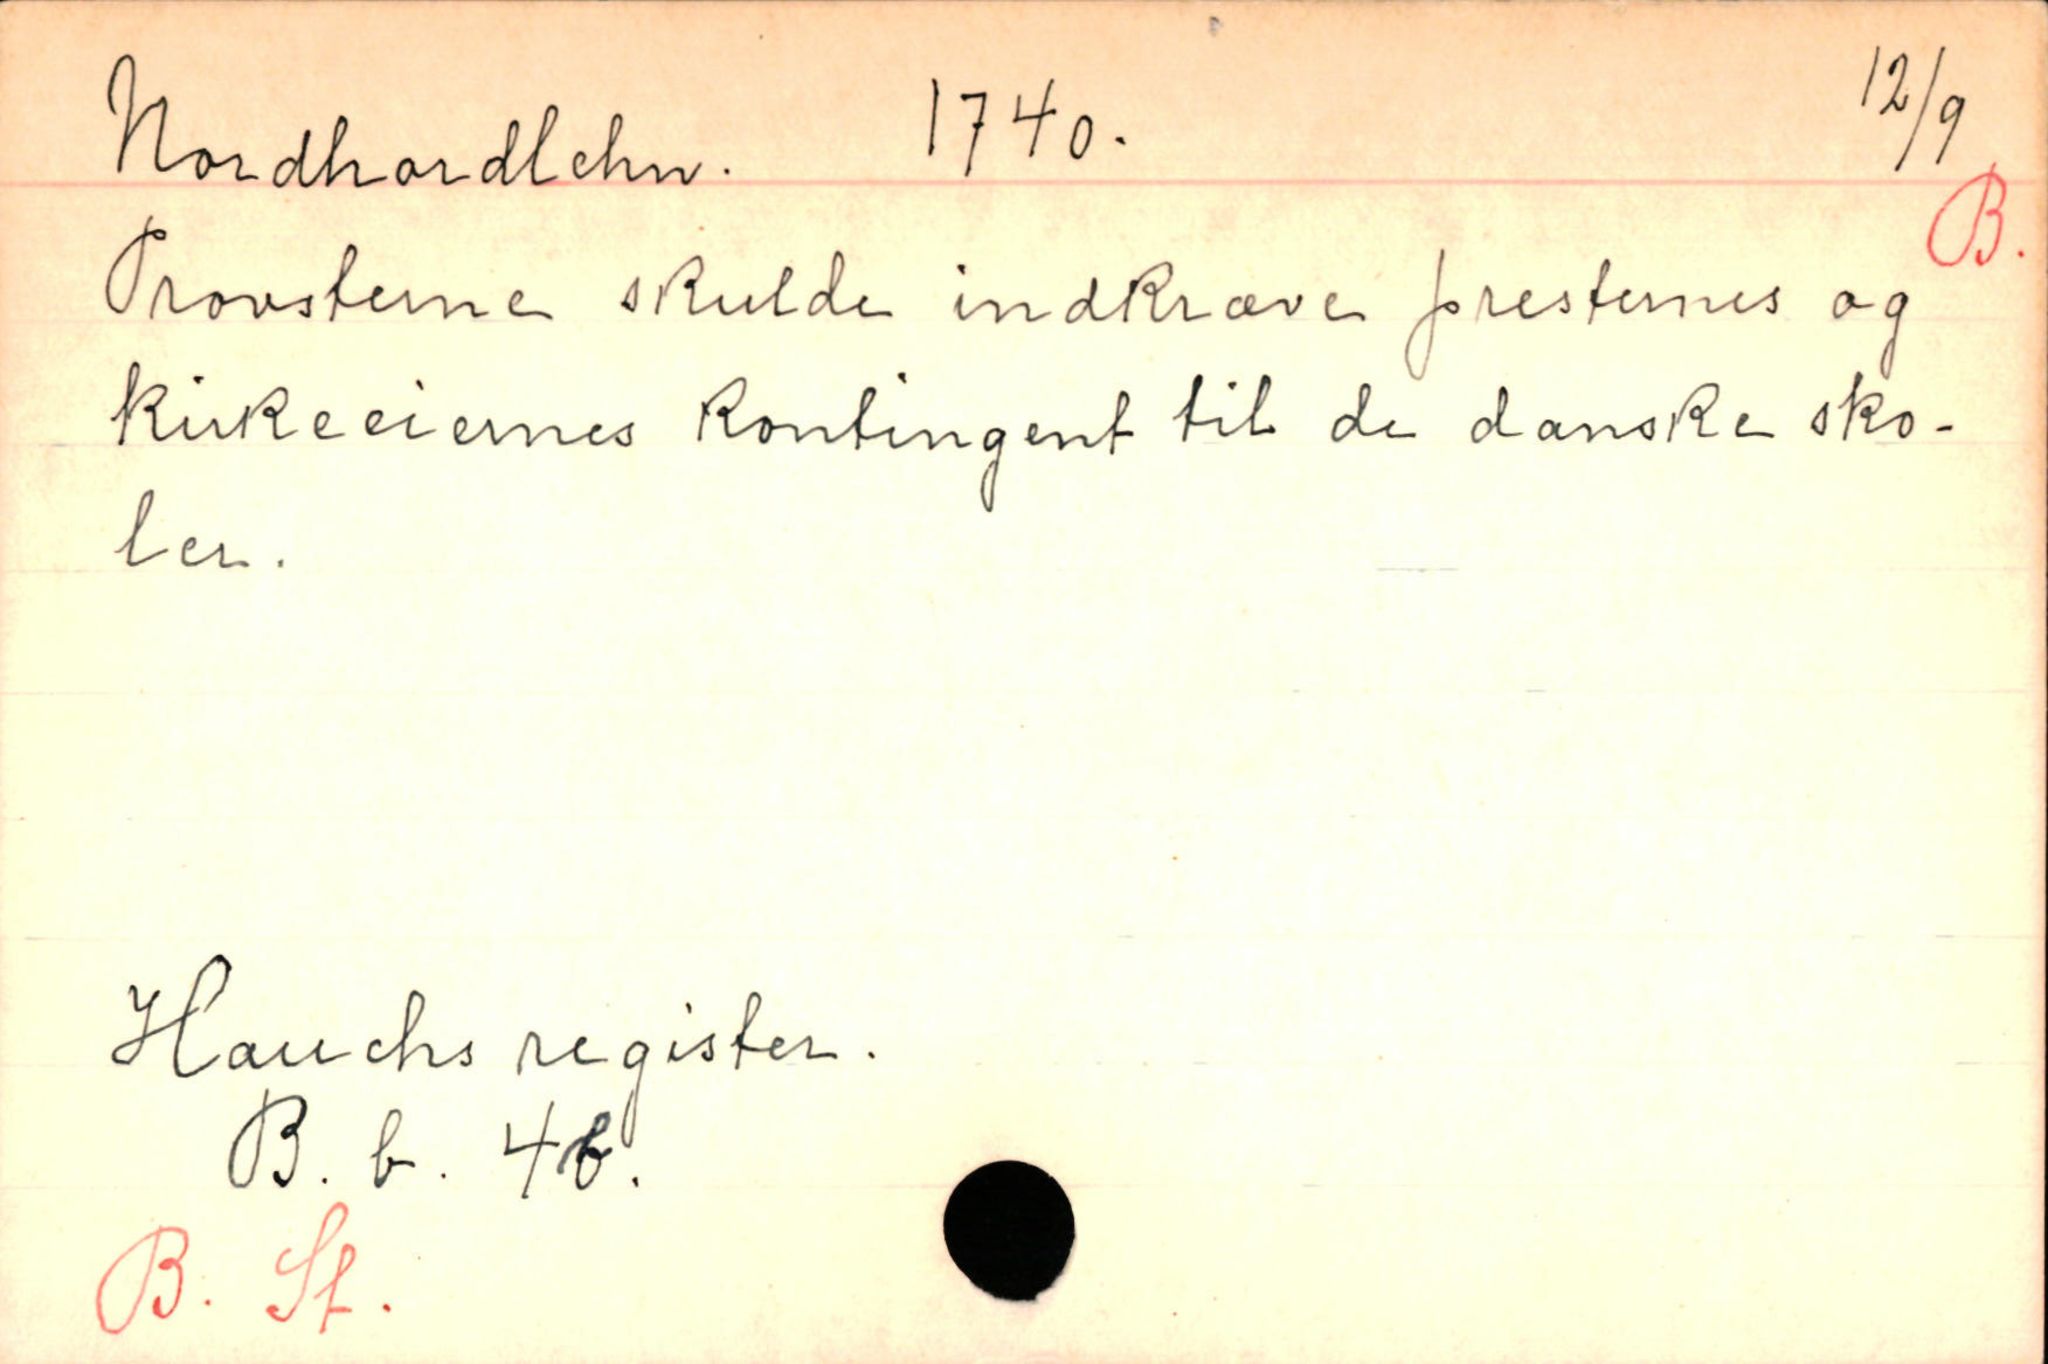 Nordhordlehn. 1740. 12/9
B.
Provsterne skulde indkræve presternes og
kirkeeiernes kontingent til de danske sko-
ler.
Hauchs register.
B. b. 4b.
B. St.